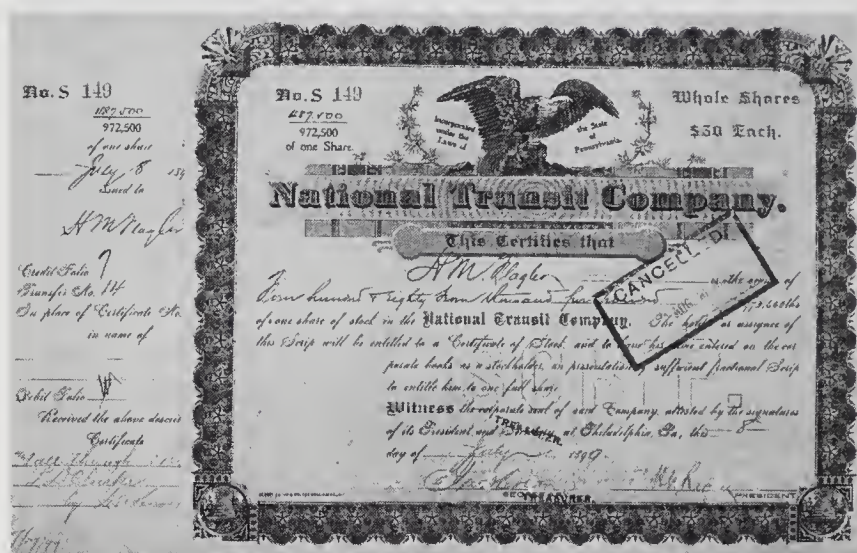 No. S 149
487,500
972,500
of one share
July 8 189
issued to
H M Flagler
Credit Folio 7
Transfer No. 14
In place of Certificate No.
in name of
Debit Folio
Received the above
Certificate
No. S 149
487,500
972,500
of one Share.
Incorporated
under the
Laws of
the State
of
Pennsylvania.
Whole Shares
$50 Each.
National Transit Company.
This Certifies that
H. M. Flagler is the owner of
Four hundred & eighty seven thousand five hundred
of one share of stock in the National Transit Company. The holder or assignee of
this Scrip will be entitled to a Certificate of Stock, and to have his name entered on the cor
porate books as a stockholder, on presentation of sufficient fractional Scrip
to entitle him to one full share
Witness the corporate seal of said Company, attested by the signatures
of its President and Treasurer, at Philadelphia, Pa, this 8
day of July 1899.
TREASURER.
PRESIDENT
CANCELLED!
AUG